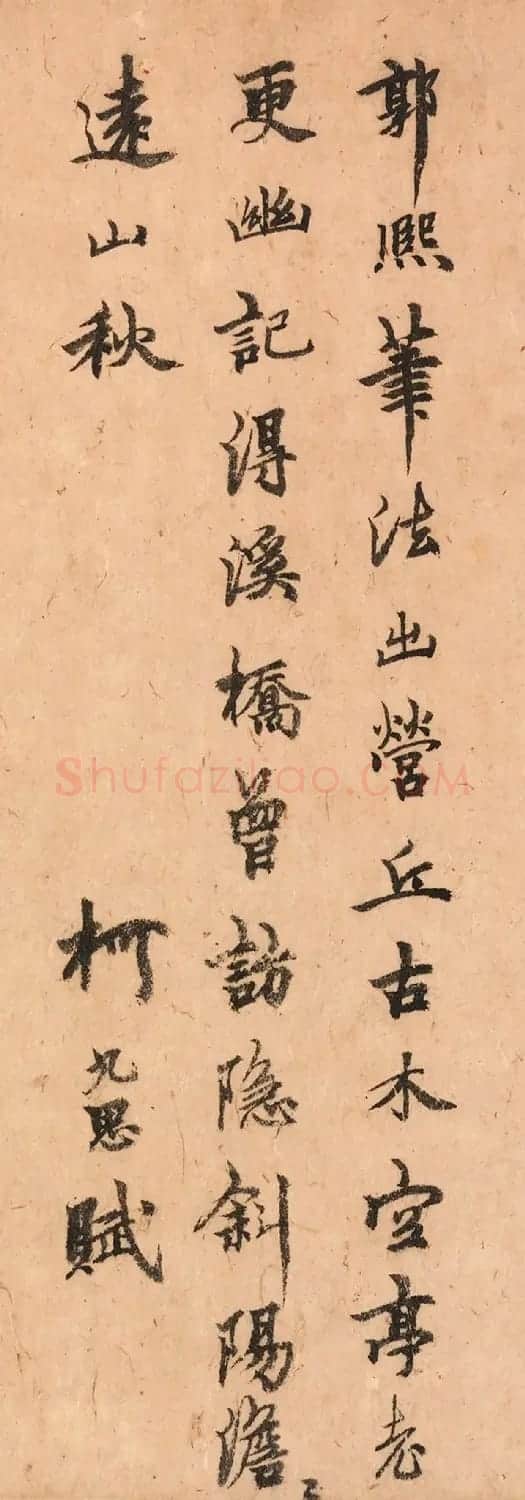 郭熙筆法出營丘古木空亭老
更幽記得溪橋曾訪隐斜陽澹〻
遠山秋
柯九思賦
Shufaziliao.COM